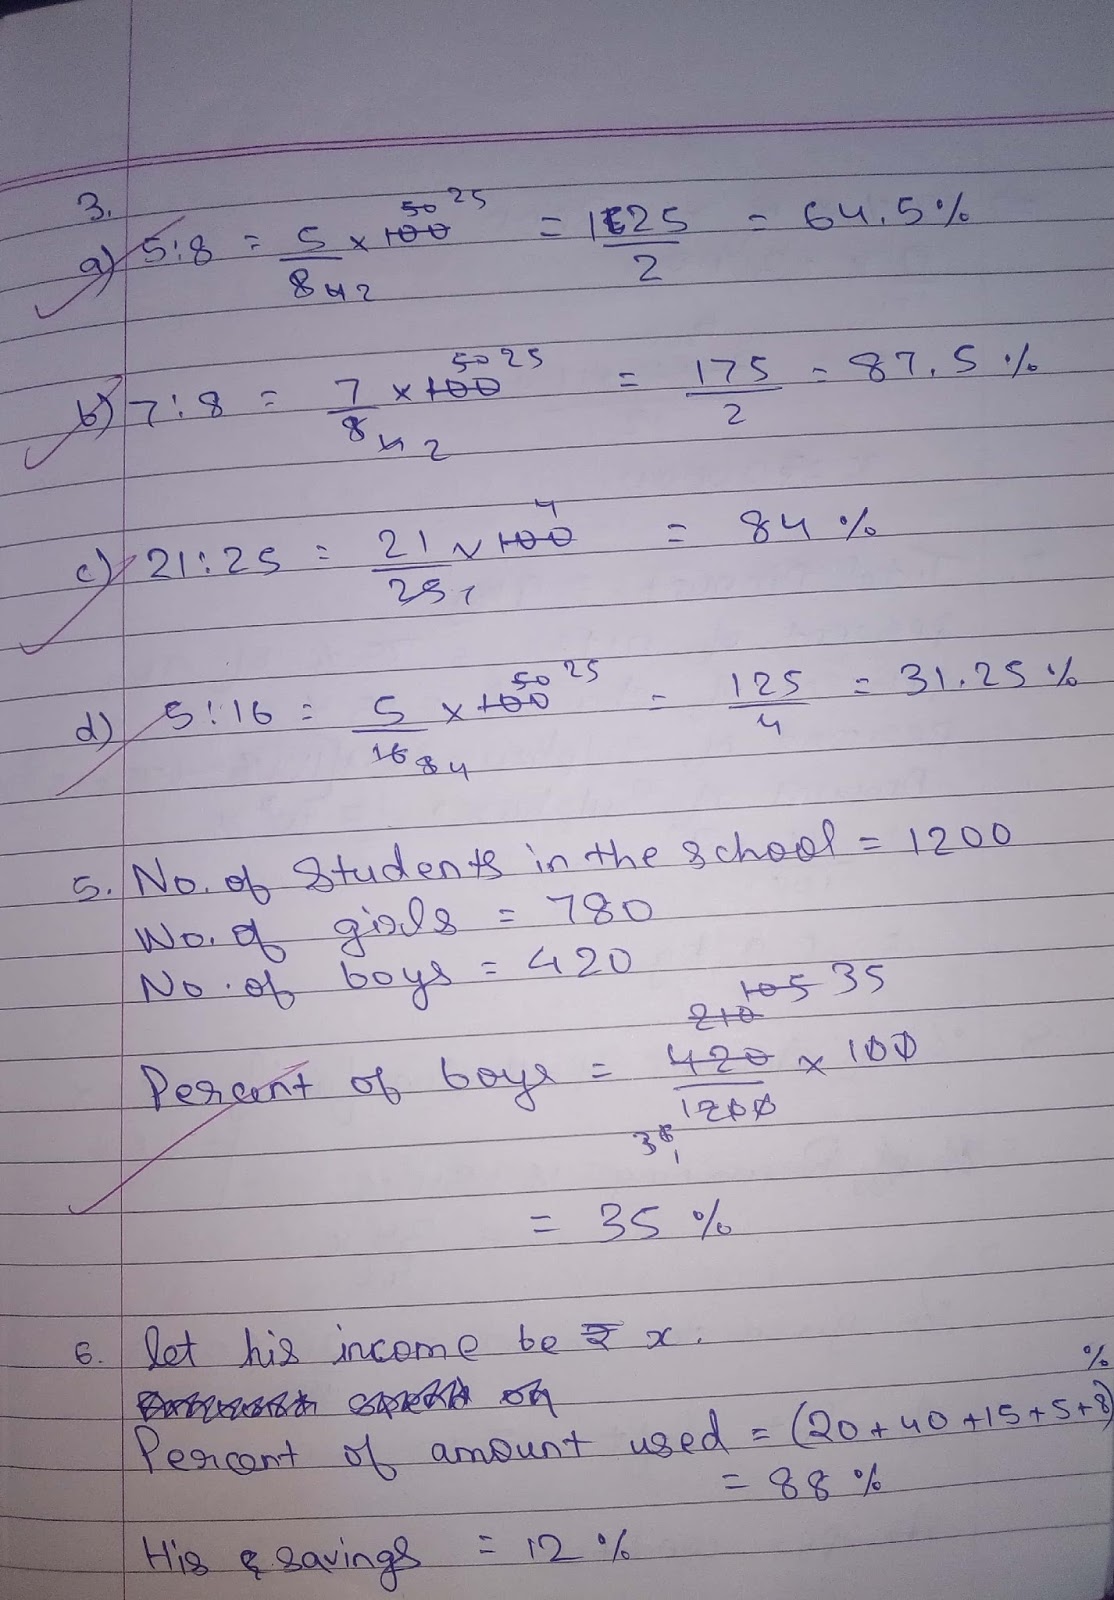 3.
a) 5:8 = 5/8 4 2 × 100 50 25 = 125/2 = 64.5%
b) 7:8 = 7/8 4 2 × 100 50 25 = 175/2 = 87.5%
c) 21:25 = 21/25 1 × 100 4 = 84%
d) 5:16 = 5/16 8 4 × 100 50 25 = 125/4 = 31.25%
5. No. of students in the school = 1200
No. of girls = 780
No. of boys = 420
Percent of boys = 420 210 105 35/1200 3 1 × 100
= 35%
6. let his income be ₹ x.
Percent of amount used = (20+40+15+5+8)%
= 88%
His savings = 12%